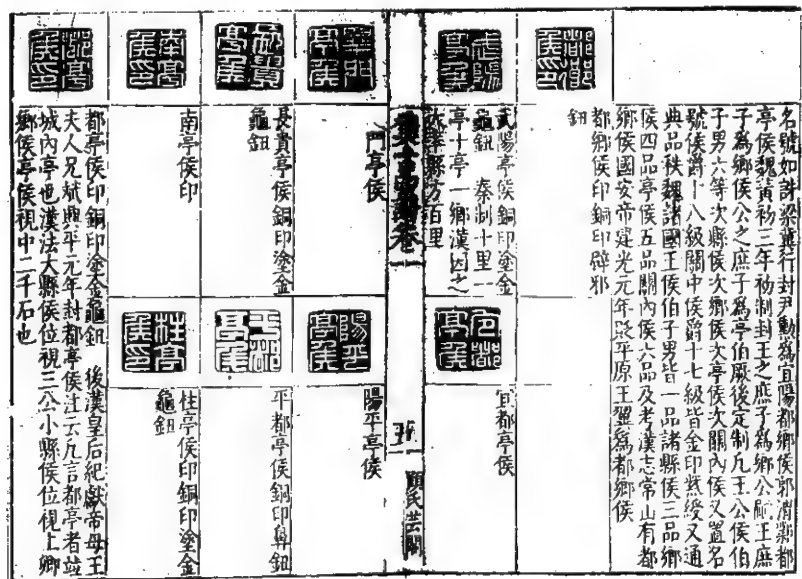 名號如誅梁冀行封尹勳為宜陽都鄉侯郭渭鄴都
亭侯魏黃初三年初制封王之庶子為鄉公嗣王庶
子為鄉侯公之庶子為亭伯厥後定制九王公侯伯
子男六等次縣侯次鄉侯次亭侯次關內侯又置名
號侯爵十八級關中侯爵十七級皆金印紫綬又通
典品秩魏諸國王侯伯子男皆一品諸縣侯三品鄉
侯四品亭侯五品關內侯六品及考漢志常山有都
鄉侯國安帝建光元年以平原王翼為都鄉侯
都鄉侯印
都鄉侯印銅印辟邪
鈕
武陽亭侯
武陽亭侯銅印塗金
龜鈕 秦制十里一
亭十亭一鄉漢因之
縣方百里
宜都亭侯
宜都亭侯
集古印譜卷
五
顧氏芸閣
門亭侯
陽平亭侯
陽平亭侯
長貴亭侯銅印塗金
龜鈕
平都亭侯
平都亭侯銅印鼻鈕
南亭侯印
南亭侯印
杜亭侯印
杜亭侯印銅印塗金
龜鈕
都亭侯印
都亭侯印銅印塗金龜鈕 後漢皇后紀獻帝母王
夫人兄斌興平元年封都亭侯注云凡言都亭者並
城內亭也漢法大縣侯位視三公小縣侯位視上卿
鄉侯亭侯視中二千石也